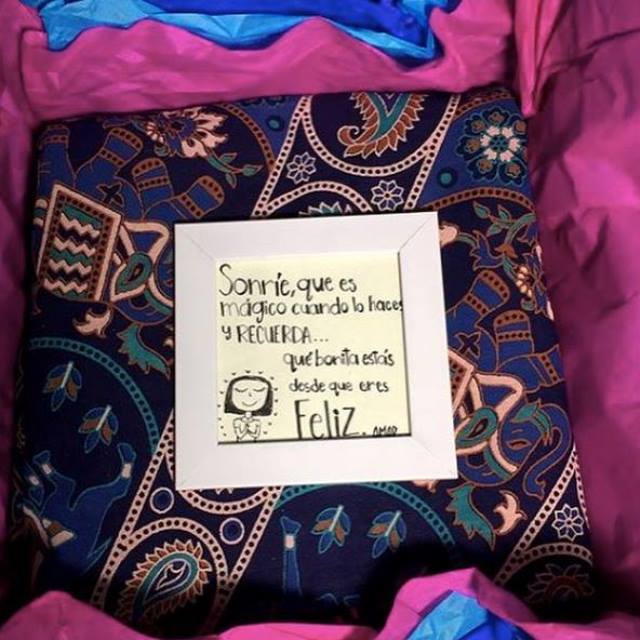 Sonríe, que es
mágico cuando lo haces
y RECUERDA...
qué bonita estás
desde que eres
Feliz. AMOR